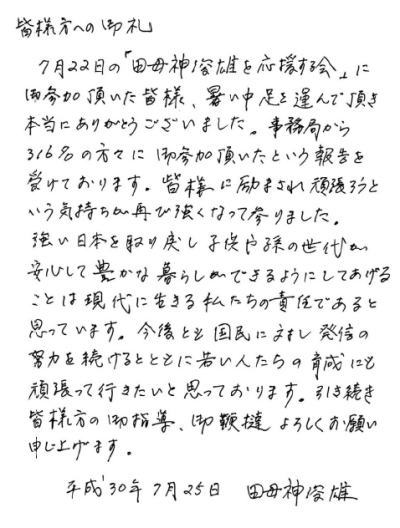 皆様方への御礼
7月22日の「田母神俊雄を応援する会」に
御参加頂いた皆様、暑い中足を運んで頂き
本当にありがとうございました。事務局から
316名の方々に御参加頂いたという報告を
受けております。皆様に励まされ頑張ろうと
いう気持ちが再び強くなって参りました。
強い日本を取り戻し子供や孫の世代が
安心して豊かな暮らしができるようにしてあげる
ことは現代に生きる私たちの責任であると
思っています。今後とも国民に対し発信の
努力を続けるとともに若い人たちの育成にも
頑張って行きたいと思っております。引き続き
皆様方の御指導、御鞭撻よろしくお願い
申し上げます。
平成30年7月25日 田母神俊雄